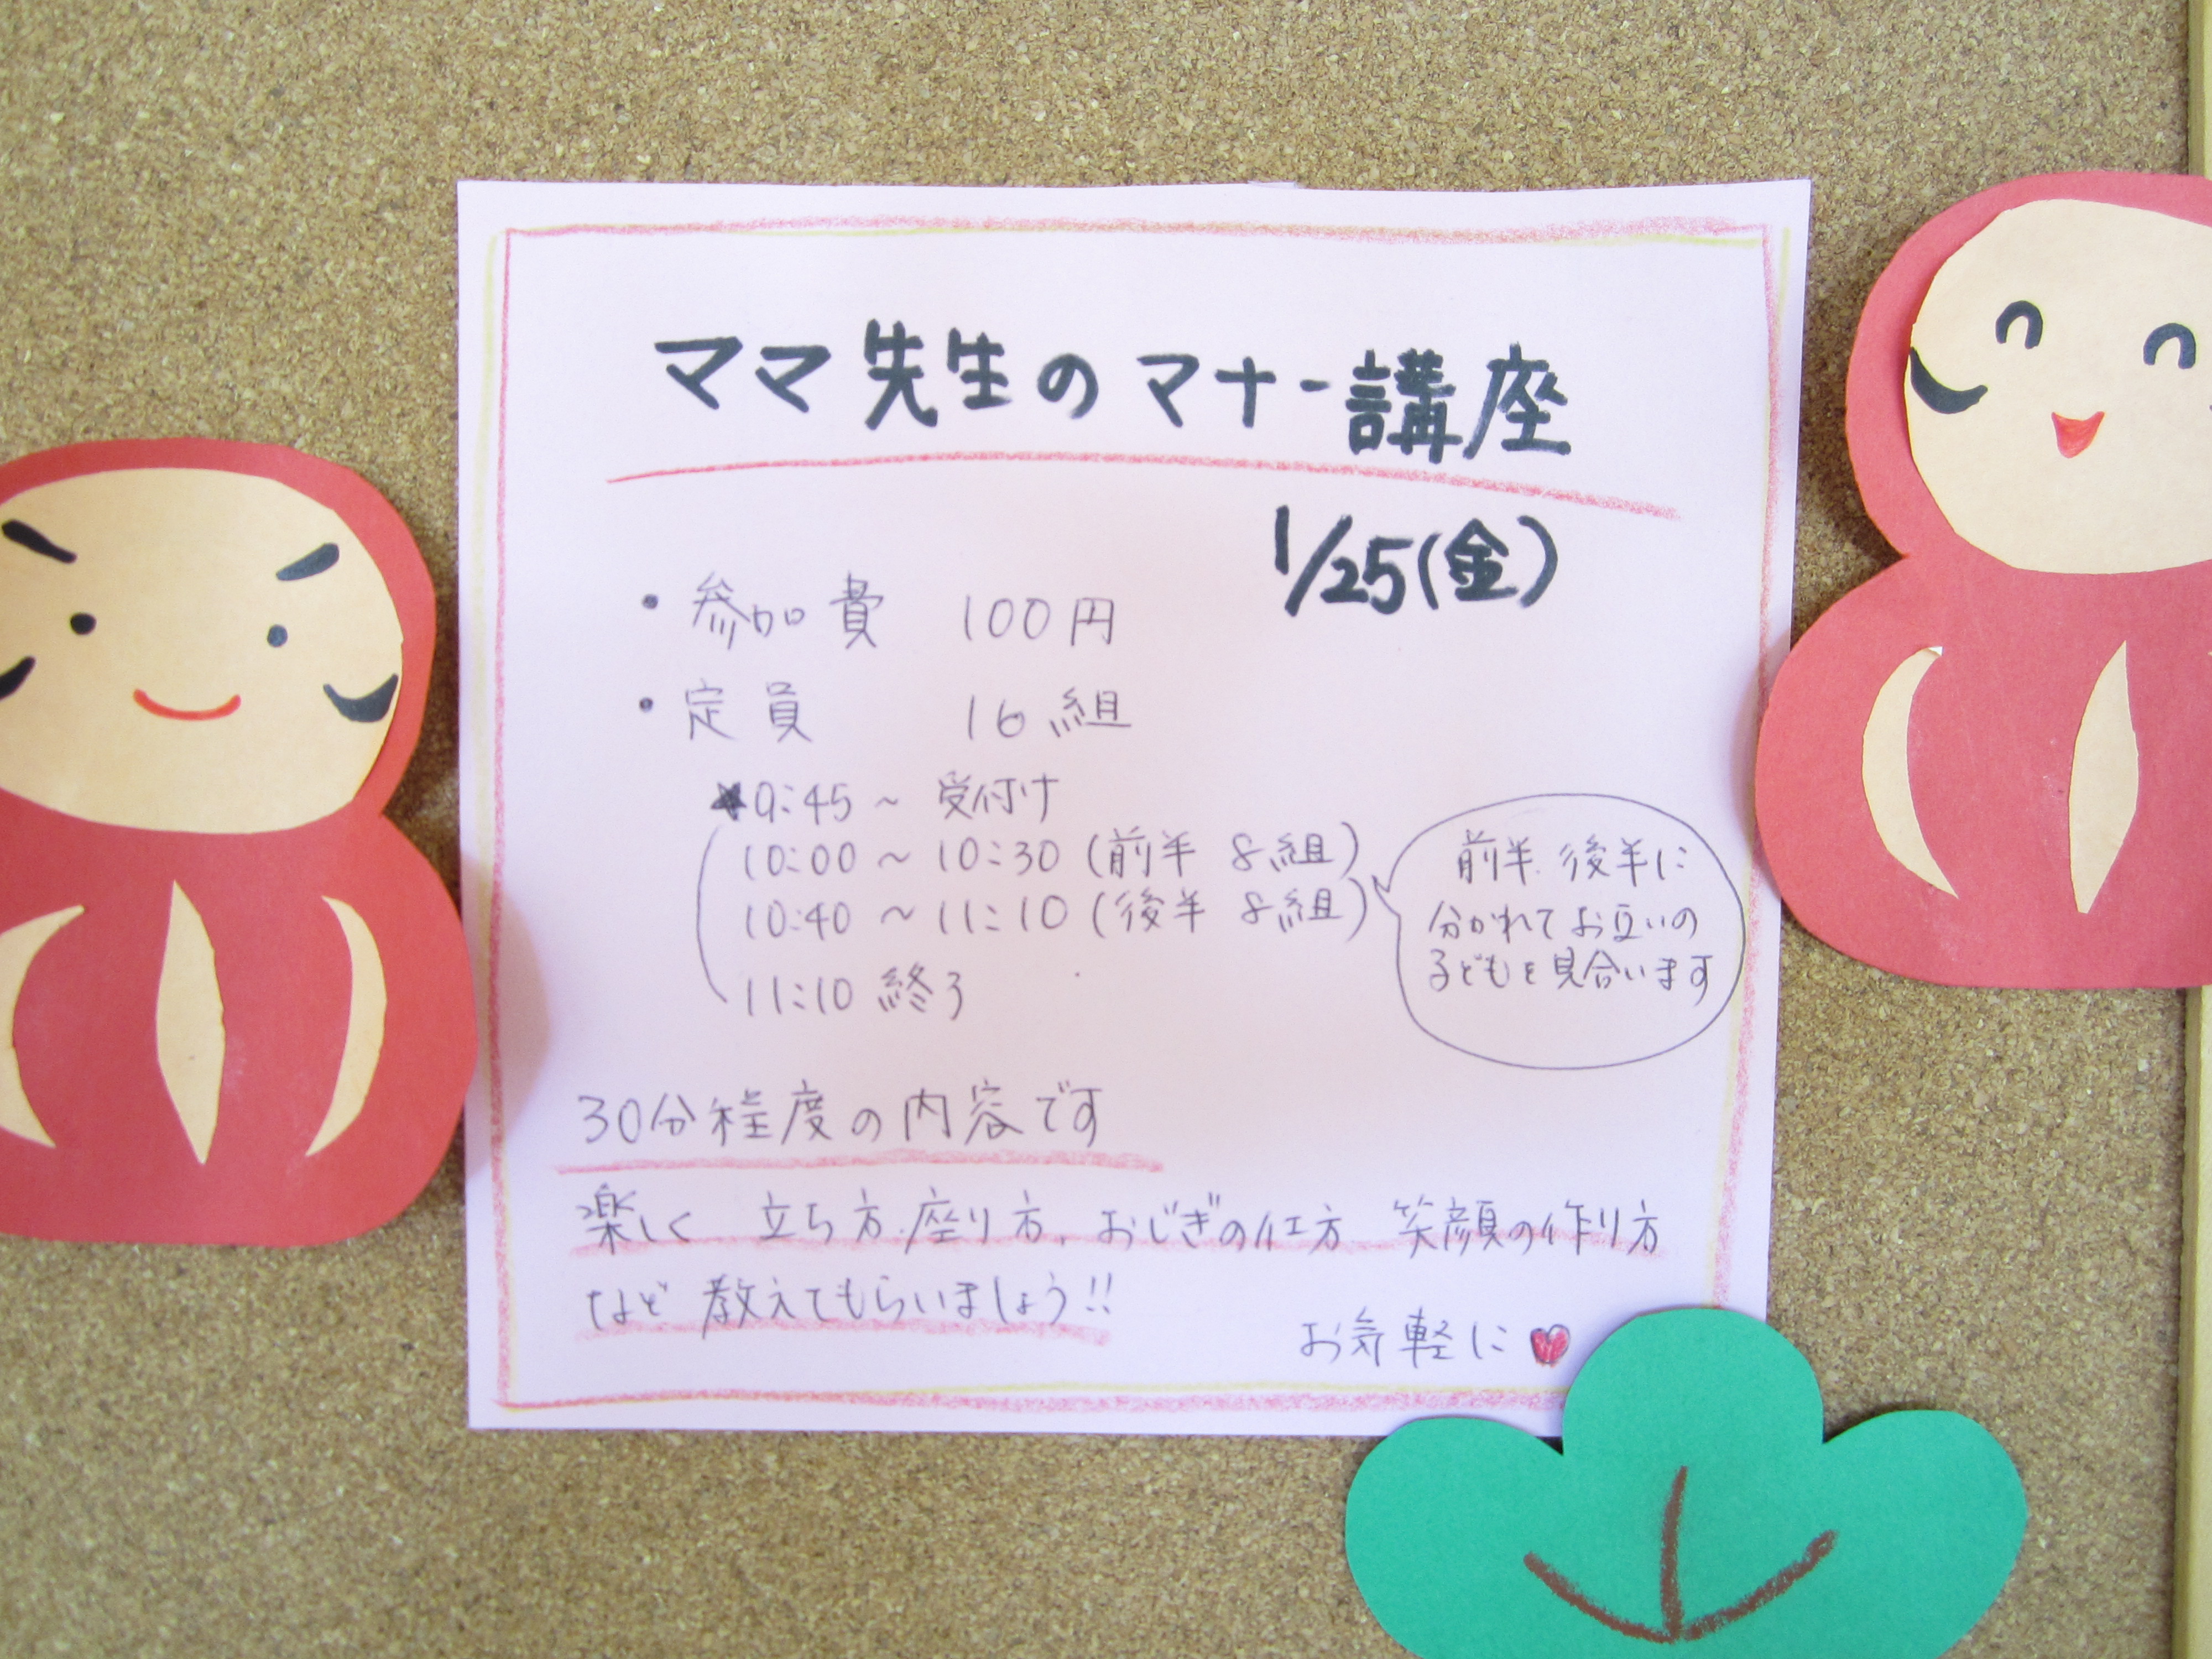 ママ先生のマナー講座
1/25(金)
・参加費 100円
・定員 16組
★9:45～受付け
10:00～10:30(前半 8組)
10:40～11:10(後半 8組)
11:10 終了
前半.後半に
分かれてお互いの
子どもを見合います
30分程度の内容です
楽しく 立ち方.座り方.おじぎの仕方.笑顔の作り方
など 教えてもらいましょう!!
お気軽に♥